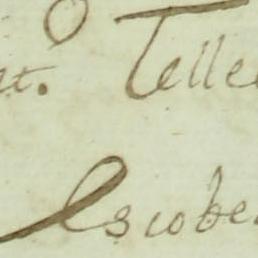 et. Telle
Escobe